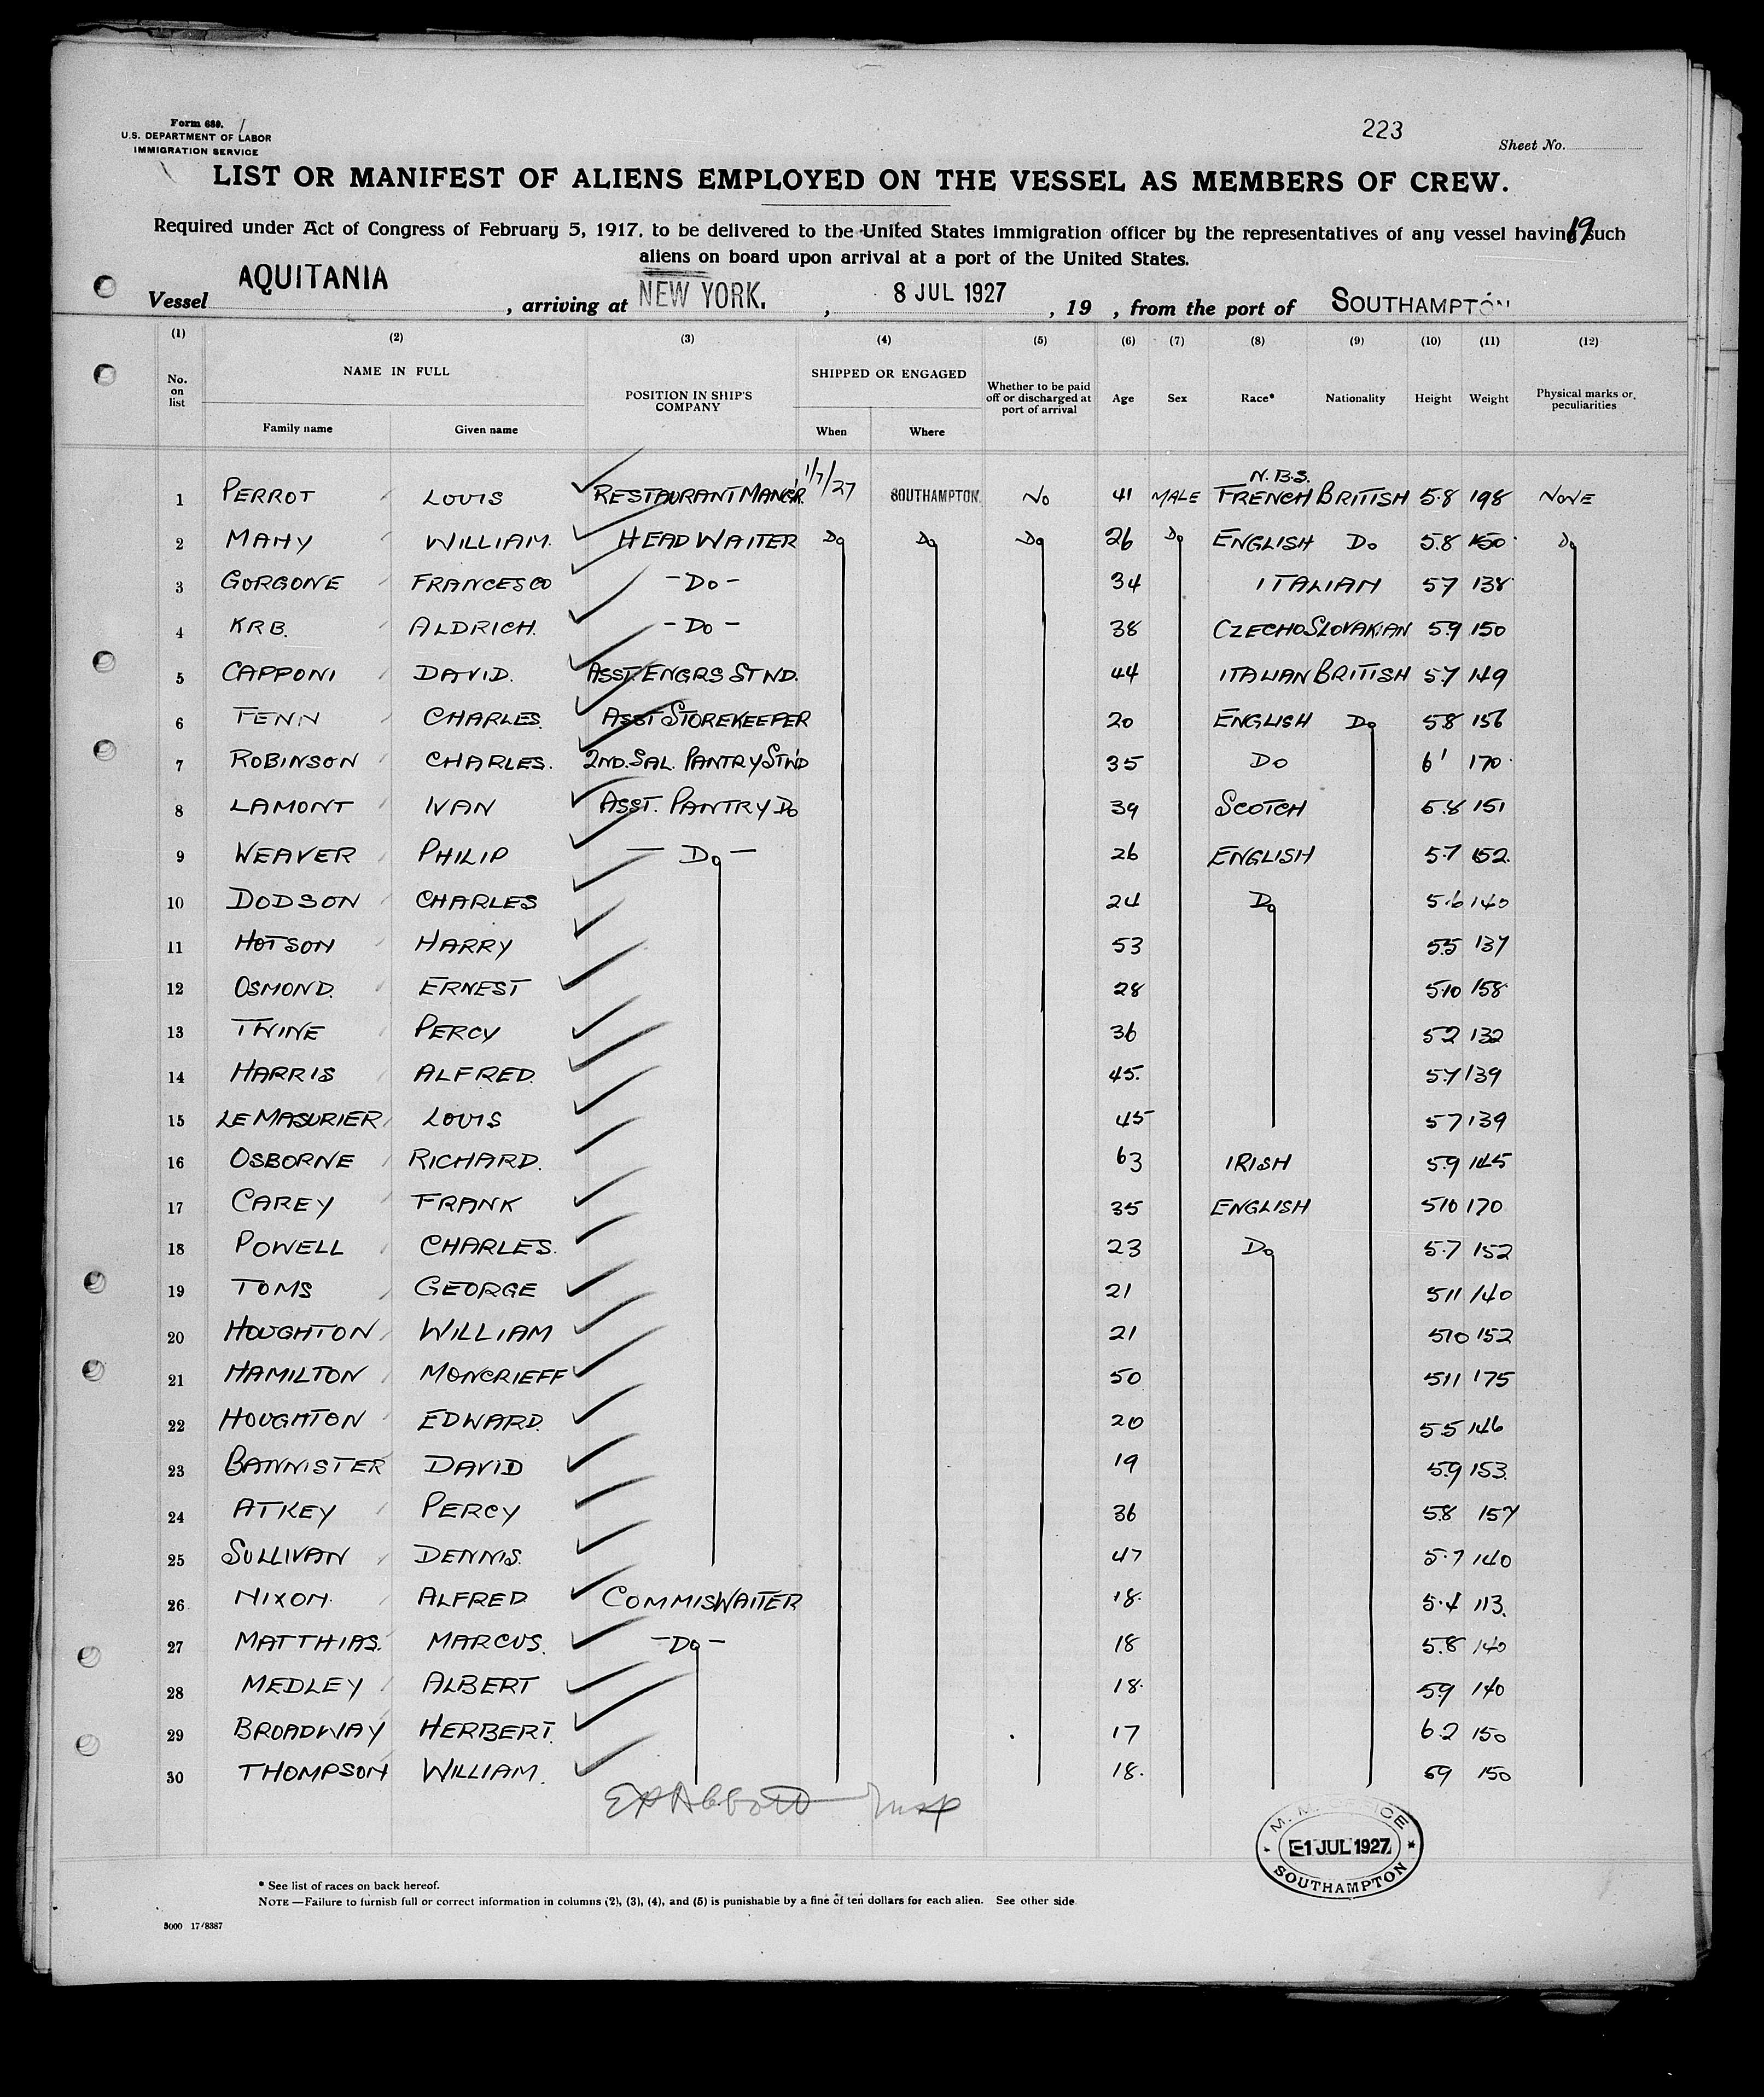 Form 680.
U.S. DEPARTMENT OF LABOR
IMMIGRATION SERVICE
223
Sheet No.
LIST OR MANIFEST OF ALIENS EMPLOYED ON THE VESSEL AS MEMBERS OF CREW.
Required under Act of Congress of February 5, 1917, to be delivered to the United States immigration officer by the representatives of any vessel having such
19
aliens on board upon arrival at a port of the United States.
Vessel AQUITANIA, arriving at NEW YORK., 8 JUL 1927, 19 , from the port of SOUTHAMPTON
(1) (2) (3) (4) (5) (6) (7) (8) (9) (10) (11) (12)
No. on list NAME IN FULL POSITION IN SHIP'S COMPANY SHIPPED OR ENGAGED Whether to be paid off or discharged at port of arrival Age Sex Race* Nationality Height Weight Physical marks or peculiarities
Family name Given name When Where
1 PERROT LOUIS RESTAURANT MANGR. 1/7/27 SOUTHAMPTON. NO 41 MALE N.B.S. FRENCH BRITISH 5.8 198 NONE
2 MAHY WILLIAM. HEAD WAITER Do Do Do 26 Do ENGLISH Do 5.8 150 Do
3 GORGONE FRANCESCO - Do - 34 ITALIAN 57 138
4 KRB. ALDRICH. - Do - 38 CZECHOSLOVAKIAN 59 150
5 CAPPONI DAVID. ASST. ENGRS STWD. 44 ITALIAN BRITISH 5.7 149
6 FENN CHARLES. ASST STOREKEEPER 20 ENGLISH Do 58 156
7 ROBINSON CHARLES. 2ND. SAL. PANTRY STWD 35 DO 6' 170
8 LAMONT IVAN ASST. PANTRY Do 39 SCOTCH 5.8 151
9 WEAVER PHILIP — Do — 26 ENGLISH 5.7 152.
10 DODSON CHARLES 24 Do 5.6 140
11 HOTSON HARRY 53 55 137
12 OSMOND. ERNEST 28 510 158
13 TWINE PERCY 36 52 132
14 HARRIS ALFRED. 45. 57 139
15 LE MASURIER LOUIS 45 57 139
16 OSBORNE RICHARD. 63 IRISH 59 145
17 CAREY FRANK 35 ENGLISH 510 170
18 POWELL CHARLES. 23 Do 5.7 152
19 TOMS GEORGE 21 511 140
20 HOUGHTON WILLIAM 21 510 152
21 HAMILTON MONCRIEFF 50 511 175
22 HOUGHTON EDWARD. 20 55 146
23 BANNISTER DAVID 19 59 153
24 ATKEY PERCY 36 58 157
25 SULLIVAN DENNIS. 47 5.7 140
26 NIXON. ALFRED COMMIS WAITER 18. 5.4 113.
27 MATTHIAS. MARCUS. - Do - 18 5.8 140
28 MEDLEY ALBERT 18. 59 140
29 BROADWAY HERBERT. 17 6.2 150
30 THOMPSON WILLIAM. 18. 59 150
E P Abbott Insp
1 JUL 1927
SOUTHAMPTON
* See list of races on back hereof.
NOTE—Failure to furnish full or correct information in columns (2), (3), (4), and (5) is punishable by a fine of ten dollars for each alien. See other side
5000 17/8387